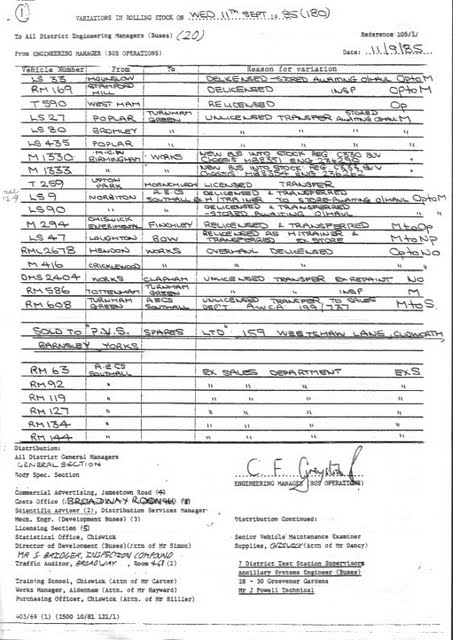 1
VARIATIONS IN ROLLING STOCK ON WED 11TH SEPT 1985 (180)
To All District Engineering Managers (Buses) (20)
Reference 105/1/
From ENGINEERING MANAGER (BUS OPERATIONS)
Date: 11/9/85
Vehicle Number From To Reason for variation
LS 33 HOUNSLOW DELICENSED - STORED AWAITING O/HAUL Op to M
RM 169 STAMFORD HILL DELICENSED INSP Op to M
T 590 WEST HAM RELICENSED Op
LS 27 POPLAR TURNHAM GREEN UNLICENSED TRANSFER STORED AWAITING O/HAUL M
LS 80 BROMLEY " " " "
LS 435 POPLAR " " " "
M 1330 M.C.W. BIRMINGHAM WORKS NEW BUS INTO STOCK REG
M 1333 " " NEW BUS INTO STOCK REG
T 259 UPTON PARK HORNCHURCH LICENSED TRANSFER
LS 9 NORBITON A.E.C.S SOUTHALL DELICENSED & TRANSFERRED TRAINER TO STORE - AWAITING O/HAUL Op to M
LS 90 " " DELICENSED & TRANSFERRED - STORED AWAITING O/HAUL "
M 294 CHISWICK EXPERIMENTAL FINCHLEY RELICENSED & TRANSFERRED M to Op
LS 47 LOUGHTON BOW RELICENSED AS M/TRAINER & TRANSFERRED EX STORE M to Np
RML 2678 HENDON WORKS OVERHAUL DELICENSED Op to No
M 416 CRICKLEWOOD " " " "
DMS 2404 WORKS CLAPHAM UNLICENSED TRANSFER EX REPAINT No
RM 586 TOTTENHAM TURNHAM GREEN " " INSP M
RM 608 TURNHAM GREEN AECS SOUTHALL UNLICENSED TRANSFER TO SALES DEP'T AWCA 199/737 M to S
SOLD TO "P.V.S. SPARES LTD", 159 WEETSHAW LANE, CUDWORTH
BARNSLEY YORKS
RM 63 A.E.C.S SOUTHALL EX SALES DEPARTMENT EX S
RM 92 " " " " "
RM 119 " " " " "
RM 127 " " " " "
RM 134 " " " " "
RM 144 " " " " "
Distribution:
All District General Managers
GENERAL SECTION
Body Spec. Section
ENGINEERING MANAGER (BUS OPERATIONS)
Commercial Advertising, Jamestown Road (4)
Costs Office (BROADWAY ROOM
Scientific Adviser (2), Distribution Services Manager
Mech. Engr. (Development Buses) (3)
Licensing Section (5)
Statistical Office, Chiswick
Director of Development (Buses)(Attn of Mr Simon)
MR S. BRIDGER, INSPECTION COMPOUND
Traffic Auditor, BROADWAY, Room 461 (2)
Training School, Chiswick (Attn of Mr Carter)
Works Manager, Aldenham (Attn. of Mr Hayward)
Purchasing Officer, Chiswick (Attn of Mr Hillier)
Distribution Continued:
Senior Vehicle Maintenance Examiner
Supplies, CHISWICK (Attn of Mr Dancy)
7 District Test Station Supervisors
Ancillary Systems Engineer (Buses)
28 - 30 Grosvenor Gardens
Mr J Powell Technical
405/69 (1) (2500 10/81 121/1)